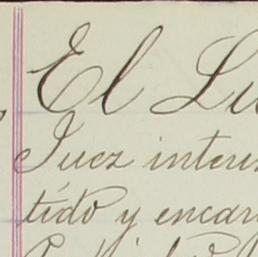 El Li
Juez inter
tido y encar